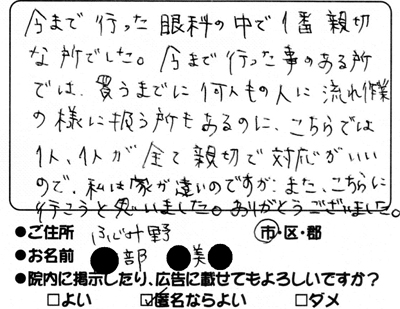 今まで行った眼科の中で1番親切
な所でした。今まで行った事のある所
では、買うまでに何人もの人に流れ作業
の様に扱う所もあるのに、こちらでは
1人、1人が全て親切で対応がいい
ので、私は家が遠いのですが、また、こちらに
行こうと思いました。ありがとうございました。
●ご住所 ふじみ野 市・区・郡
●お名前 ●部 ●美●
●院内に掲示したり、広告に載せてもよろしいですか?
□よい ☑匿名ならよい □ダメ